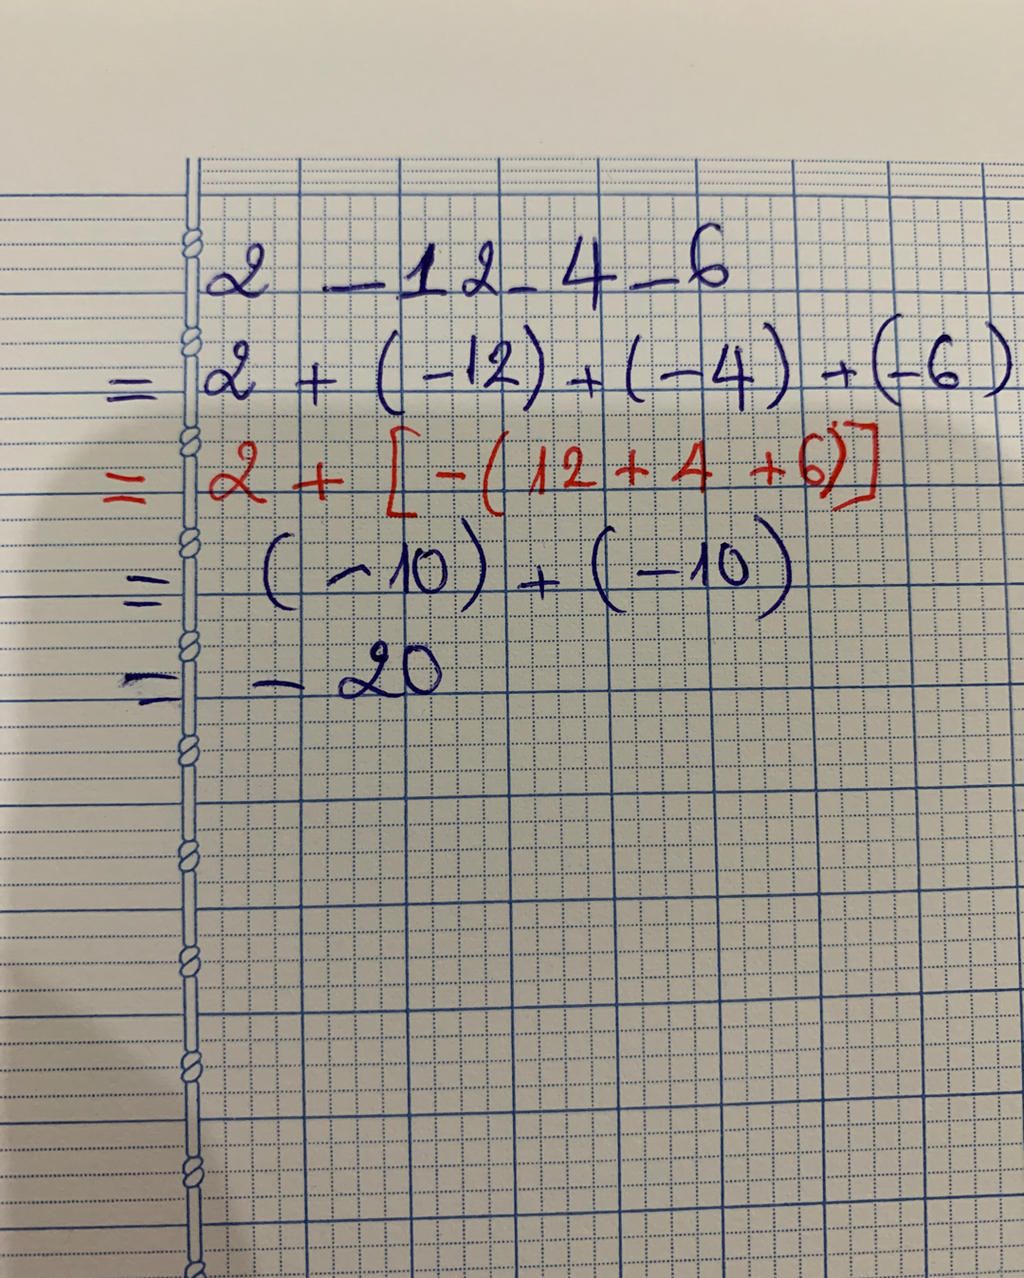 2 - 12 - 4 - 6
= 2 + (-12) + (-4) + (-6)
= 2 + [-(12 + 4 + 6)]
= (-10) + (-10)
= - 20